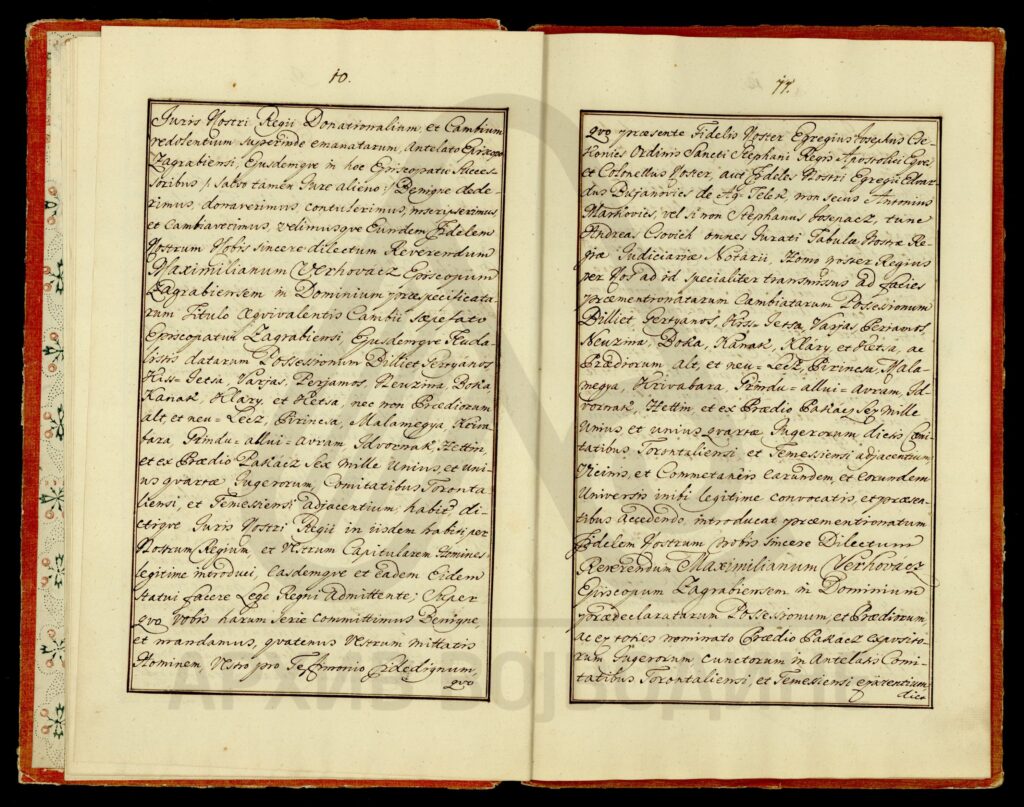 10.
Juris Nostri Regii Donationalium, et Cambium
redolentium superinde emanatarum, Antelato Episcopo
Zagrabiensi, Ejusdemque in hoc Episcopatu Succes-
soribus /: Salvo tamen Jure alieno :/ Benigne dede-
rimus, donaverimus, contulerimus, inscripserimus
et Cambiaverimus, velimusque Eundem Fidelem
Nostrum Nobis sincere dilectum Reverendum
Maximilianum Verhovacz Episcopum
Zagrabiensem in Dominium praespecificata-
rum Titulo Aequivalentis Cambii saepefato
Episcopatui Zagrabiensi, Ejusdemque
datarum Possessionum Billiet Sertyanos
Kiss-Jetsa, Varjas, Perjamos, Neuzina, Boka
Kanak Klary, et Hetsa, nec non Praediorum
alt, et neu-Lecz, Pirinesa, Malamegya, Kriva-
bara, Prindu-allui-Avram, Idvornak, Hettin,
et ex Praedio Pakacz Sex Mille Unius, et uni-
us quartae Jugerorum, Comitatibus Toronta-
liensi, et Temessiensi adjacentium, habiti di-
ctique Juris Nostri Regii in iisdem habiti per
Nostrum Regium, et Vestrum Capitularem Homines
legitime introduci, Easdemque et eadem Eidem
statui facere Lege Regni Admittente; Super
quo Vobis harum serie Committimus Benigne,
et mandamus, quatenus Vestrum mittatis
Hominem Vestro pro Testimonio Fidedignum,
quo
11.
quo praesente Fidelis Noster Egregius Josephus Cse-
honics Ordinis Sancti Stephani Regis Apostolici Eques
et Colonellus Noster, aut Fideles Nostri Egregii Edvar-
dus Bujanovics de Agg Telek, non secus Antonius
Markovics, vel si non Stephanus tunc
Andreas Csovich omnes Jurati Tabulae Nostrae Re-
giae Judiciariae Notarii, Homo noster Regius
per Nos ad id specialiter transmissus ad facies
praementionatarum Cambiatarum Possessionum
Billiet Sertyanos, Kiss-Jetsa, Varjas, Perjamos,
Neuzina, Boka, Kanak, Klary, et Hetsa, ac
Praediorum, alt, et neu-Lecz, Pirinesa, Mala-
megya, Krivabara, Prindu-allui-Avram, Id-
vornak, Hettin, et ex Praedio Pakacz Sex Mille
Unius, et unius quartae Jugerorum dictis Comi-
tatibus Torontaliensi, et Temessiensi adjacentium,
Vicinis, et Commetaneis earundem, et eorundem
Universis inibi legitime convocatis, et praesen-
tibus accedendo, introducat praementionatum
Fidelem Nostrum Nobis Sincere Dilectum
Reverendum Maximilianum Verhovacz
Episcopum Zagrabiensem in Dominium
praedeclaratarum Possessionum, et Praediorum,
ac ex toties nominato Praedio Pakacz exposito-
rum Jugerorum, cunctorum in Antelatis Comi-
tatibus Torontaliensi, et Temessiensi existentium,